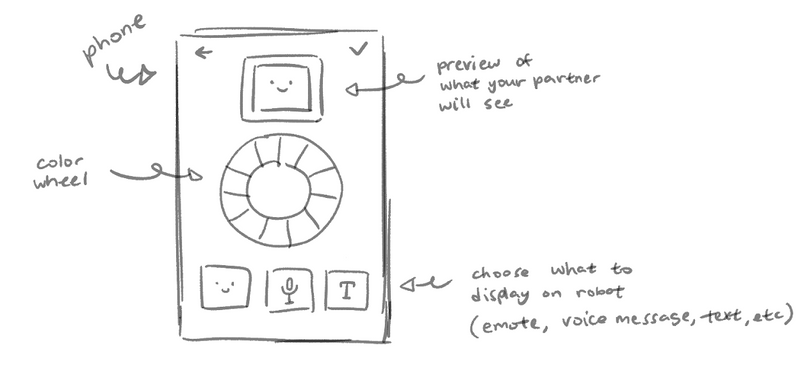 phone
preview of
what your partner
will see
color
wheel
T
choose what to
display on robot
(emote, voice message, text, etc)